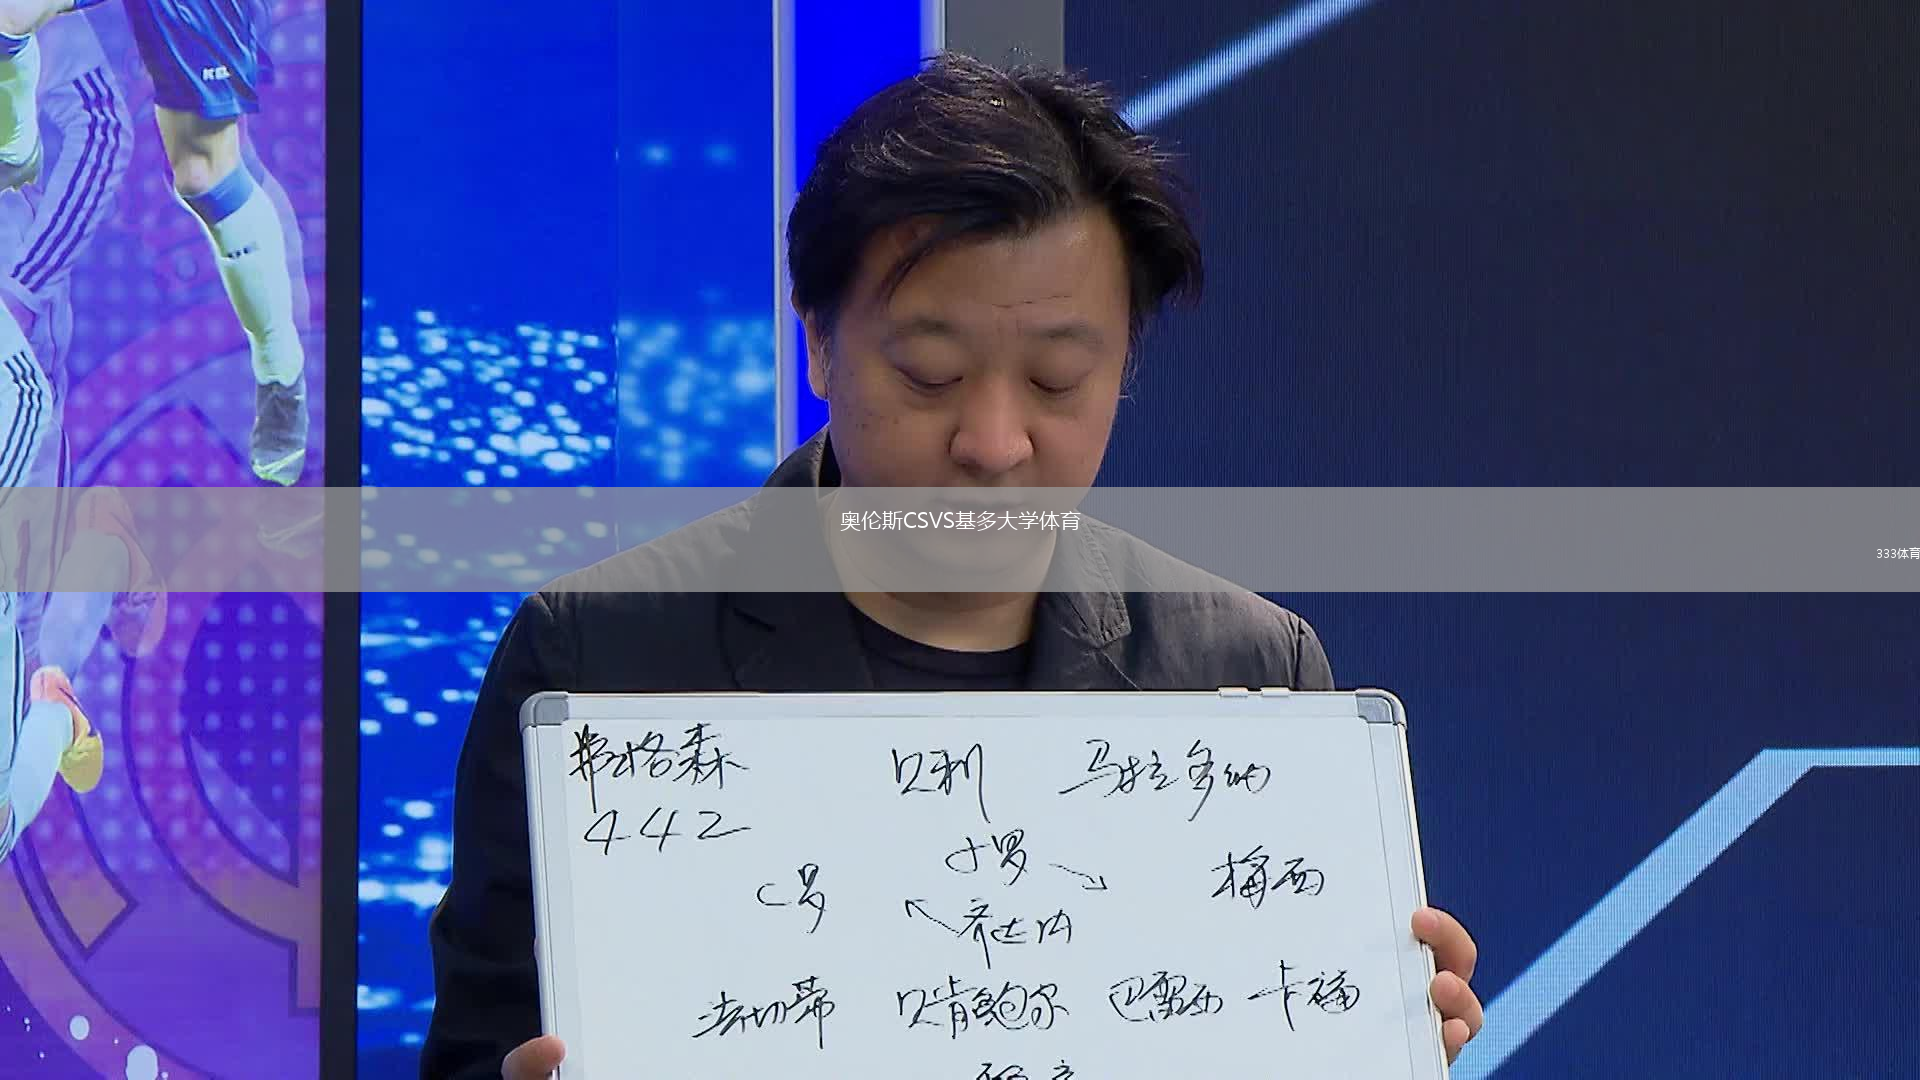 KEL
奥伦斯CSVS基多大学体育
333体育
弗格森 贝利 马拉多纳
442
小罗
C罗 梅西
齐达内
法切蒂 贝肯鲍尔 巴雷西 卡福